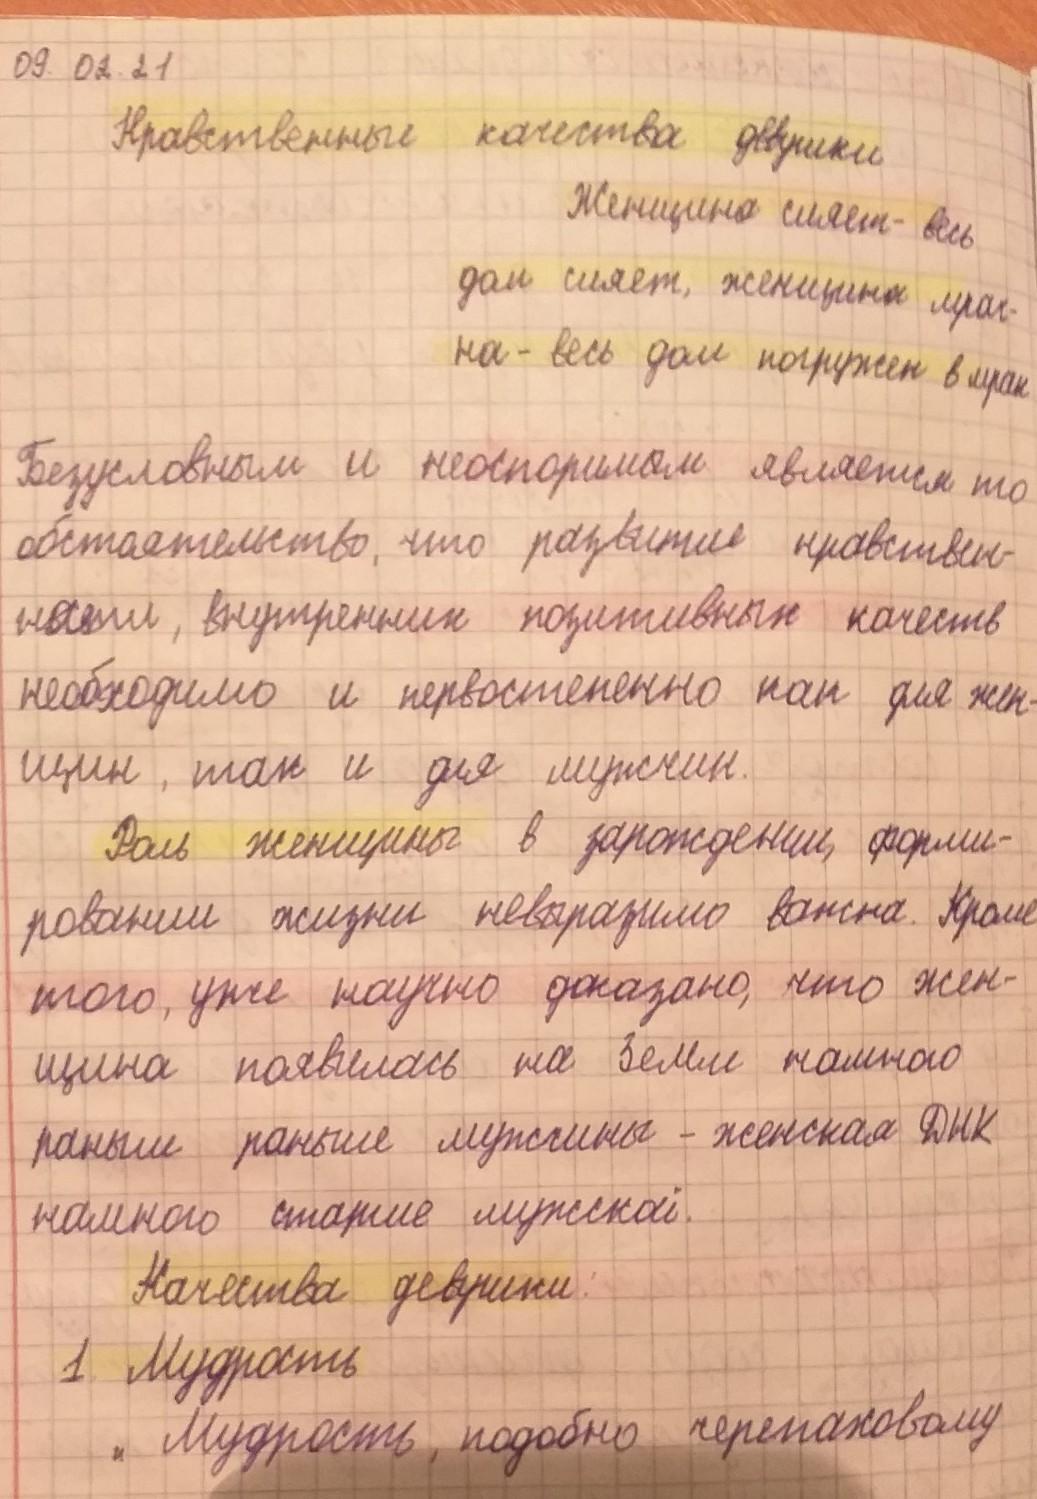 09. 02. 21
Нравственные качества девушки
Женщина сияет - весь
дом сияет, женщина мрач-
на - весь дом погружен в мрак
Безусловным и неоспоримым является то
обстоятельство, что развитие нравствен-
ности, внутренних позитивных качеств
необходимо и первостепенно как для жен-
щин, так и для мужчин.
Роль женщины в зарождении, форми-
ровании жизни невыразимо важна. Кроме
того, уже научно доказано, что жен-
щина появилась на Земли намного
раньши раньше мужчины - женская ДНК
намного старше мужской.
Качества девушки:
1. Мудрость
„ Мудрость, подобно черепаховому